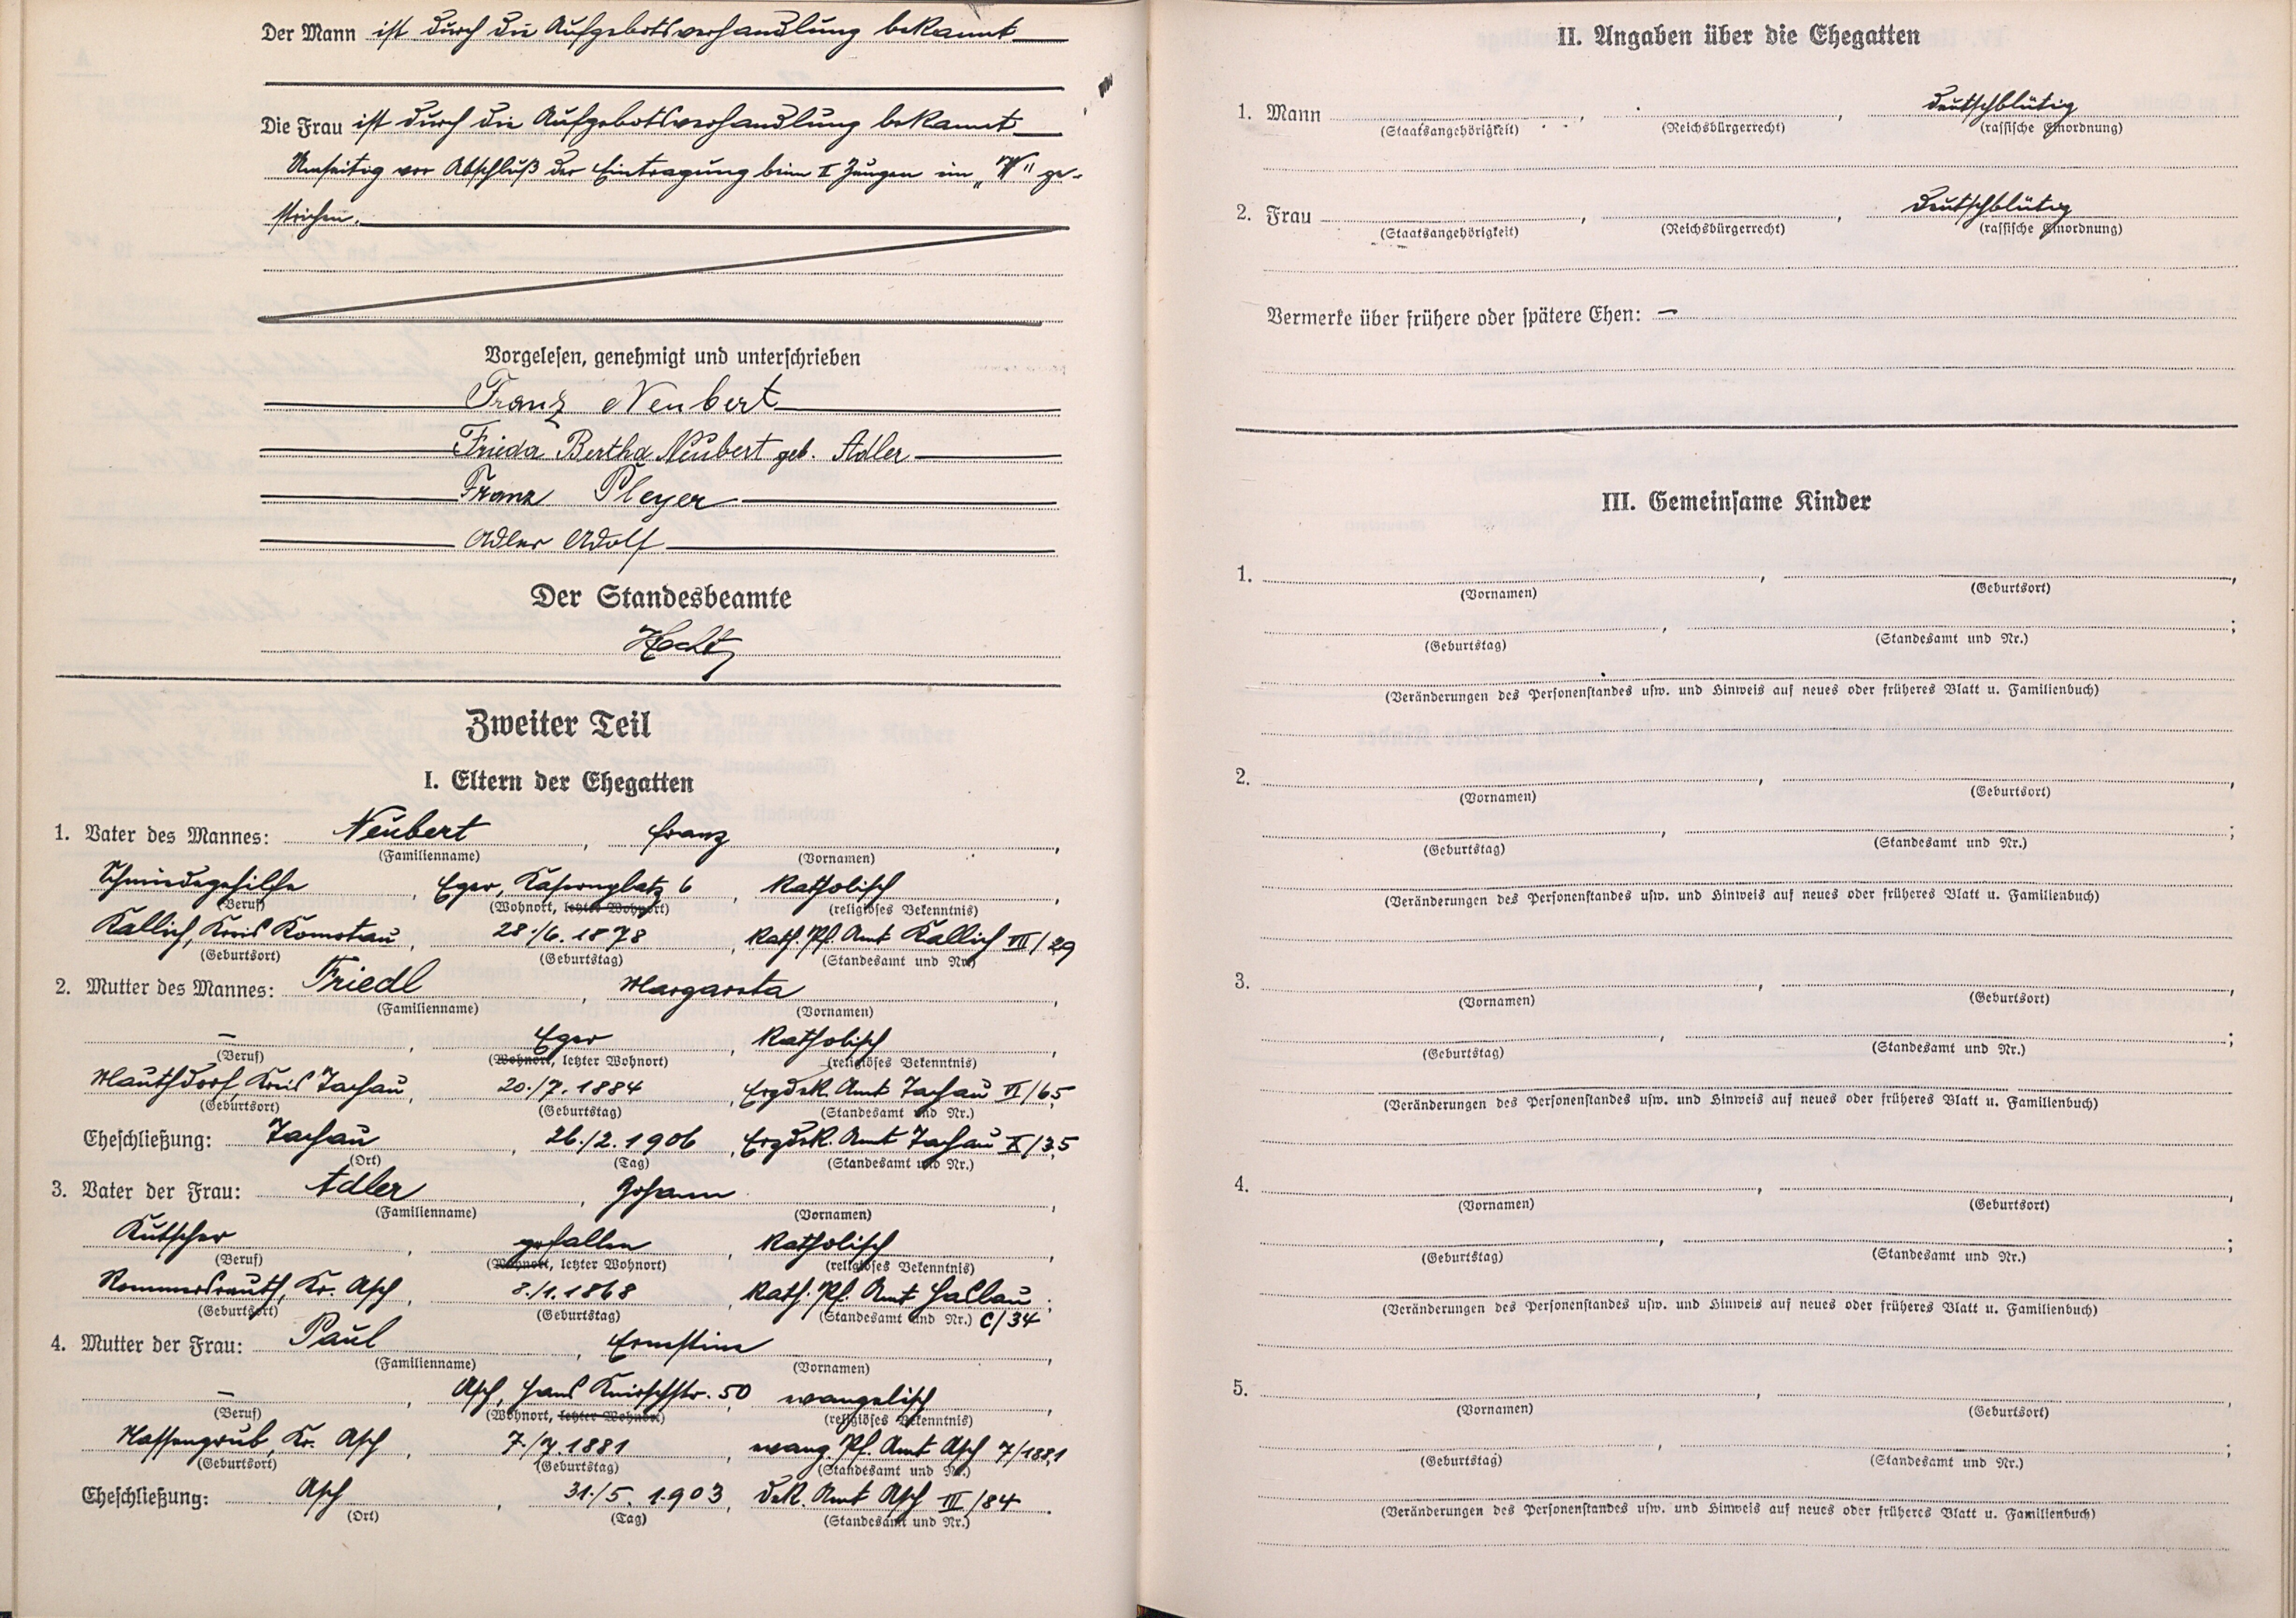 Der Mann ist durch die Aufgebotsverhandlung bekannt
Die Frau ist durch die Aufgebotsverhandlung bekannt
Umseitig vor Abschluß der Eintragung beim II Zeugen ein „W" ge-
strichen.
Vorgelesen, genehmigt und unterschrieben
Franz Neubert
Frieda Bertha Neubert geb. Adler
Franz Pleyer
Adler Adolf
Der Standesbeamte
Hecht
Zweiter Teil
I. Eltern der Ehegatten
1. Vater des Mannes: Neubert, Franz,
(Familienname) (Vornamen)
Schmiedegehilfe, Eger, Kasernplatz 6, katholisch,
(Beruf) (Wohnort, letzter Wohnort) (religiöses Bekenntnis)
Kallich, Kreis Komotau, 28./6. 1878, Kath. Pf. Amt Kallich VII/29
(Geburtsort) (Geburtstag) (Standesamt und Nr.)
2. Mutter des Mannes: Friedl, Margareta,
(Familienname) (Vornamen)
—, Eger, katholisch,
(Beruf) (Wohnort, letzter Wohnort) (religiöses Bekenntnis)
Mauthdorf, Kreis Tachau, 20./7. 1884, Erzdek. Amt Tachau VI/65
(Geburtsort) (Geburtstag) (Standesamt und Nr.)
Eheschließung: Tachau, 26./2. 1906, Erzdek. Amt Tachau X/35
(Ort) (Tag) (Standesamt und Nr.)
3. Vater der Frau: Adler, Johann,
(Familienname) (Vornamen)
Kutscher, gefallen, katholisch,
(Beruf) (Wohnort, letzter Wohnort) (religiöses Bekenntnis)
Rommersreuth, Kr. Asch, 8./1. 1868, Kath. Pf. Amt Haslau;
(Geburtsort) (Geburtstag) (Standesamt und Nr.) C/34
4. Mutter der Frau: Paul, Ernestine,
(Familienname) (Vornamen)
—, Asch, Hans Knirschstr. 50, evangelisch,
(Beruf) (Wohnort, letzter Wohnort) (religiöses Bekenntnis)
Nassengrub, Kr. Asch, 7./7. 1881, evang. Pf. Amt Asch 7/1881
(Geburtsort) (Geburtstag) (Standesamt und Nr.)
Eheschließung: Asch, 31./5. 1903, Dek. Amt Asch III/84.
(Ort) (Tag) (Standesamt und Nr.)
II. Angaben über die Ehegatten
1. Mann , , deutschblütig
(Staatsangehörigkeit) (Reichsbürgerrecht) (rassische Einordnung)
2. Frau , , deutschblütig
(Staatsangehörigkeit) (Reichsbürgerrecht) (rassische Einordnung)
Vermerke über frühere oder spätere Ehen: —
III. Gemeinsame Kinder
1. , ,
(Vornamen) (Geburtsort)
, ;
(Geburtstag) (Standesamt und Nr.)
(Veränderungen des Personenstandes usw. und Hinweis auf neues oder früheres Blatt u. Familienbuch)
2. , ,
(Vornamen) (Geburtsort)
, ;
(Geburtstag) (Standesamt und Nr.)
(Veränderungen des Personenstandes usw. und Hinweis auf neues oder früheres Blatt u. Familienbuch)
3. , ,
(Vornamen) (Geburtsort)
, ;
(Geburtstag) (Standesamt und Nr.)
(Veränderungen des Personenstandes usw. und Hinweis auf neues oder früheres Blatt u. Familienbuch)
4. , ,
(Vornamen) (Geburtsort)
, ;
(Geburtstag) (Standesamt und Nr.)
(Veränderungen des Personenstandes usw. und Hinweis auf neues oder früheres Blatt u. Familienbuch)
5. , ,
(Vornamen) (Geburtsort)
, ;
(Geburtstag) (Standesamt und Nr.)
(Veränderungen des Personenstandes usw. und Hinweis auf neues oder früheres Blatt u. Familienbuch)